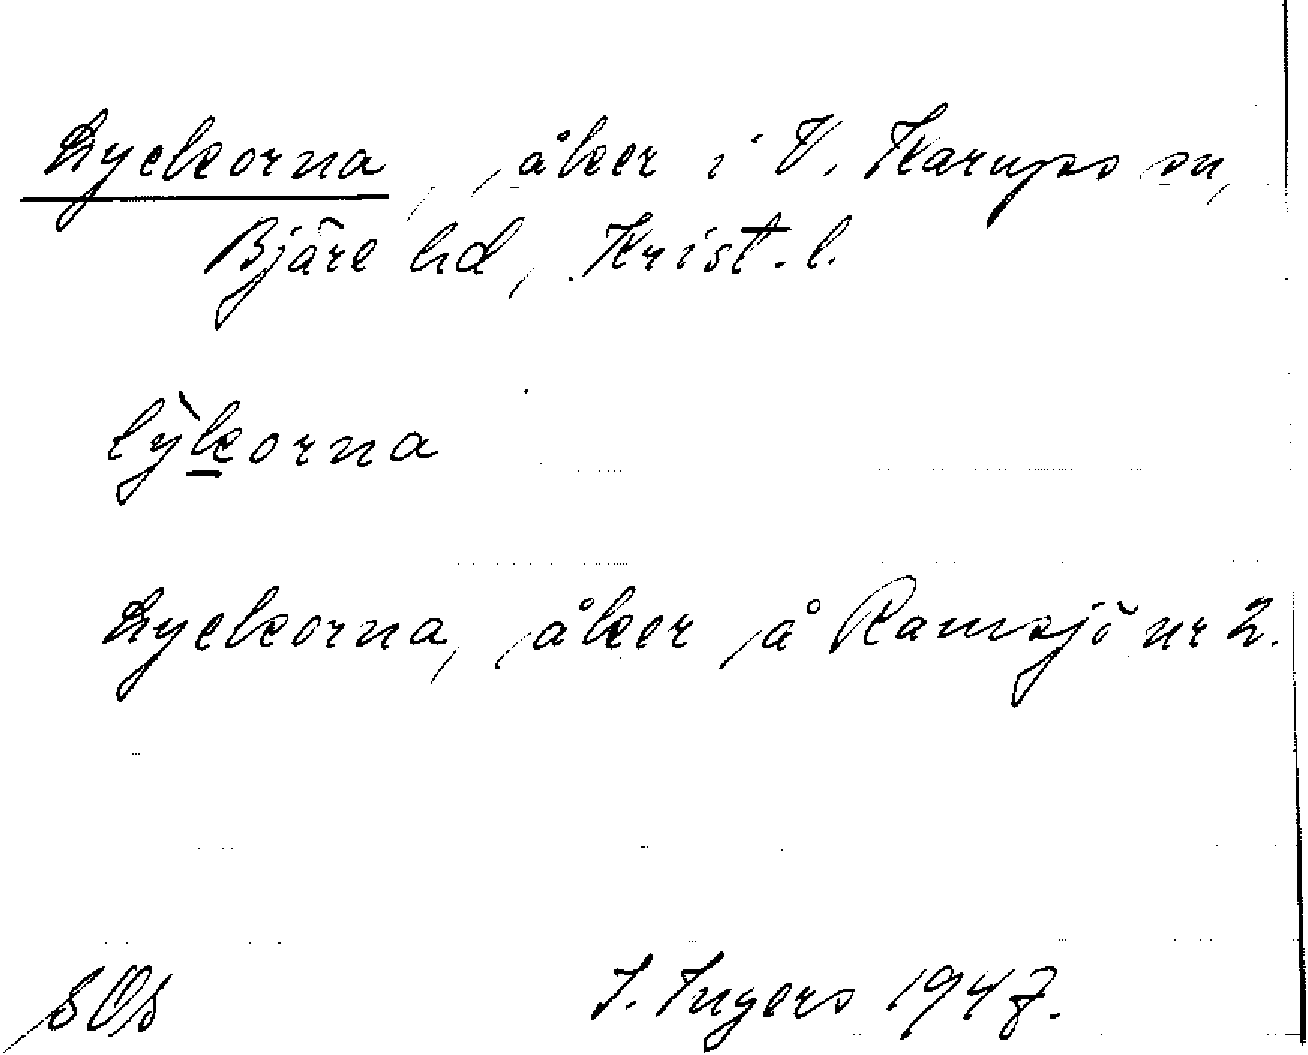 Lyckorna, åker i V. Karups sn,
Bjäre hd, Krist. l.
lỳkorna
Lyckorna, åker å Ramsjö nr 2.
SOS I. Ingers 1947.